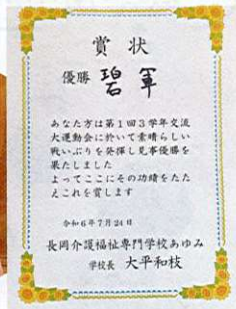 賞状
優勝 碧軍
あなた方は第1回3学年交流
大運動会に於いて素晴らしい
戦いぶりを発揮し見事優勝を
果たしました
よってここにその功績をたた
えこれを賞します
令和6年7月24日
長岡介護福祉専門学校あゆみ
学校長 大平和枝